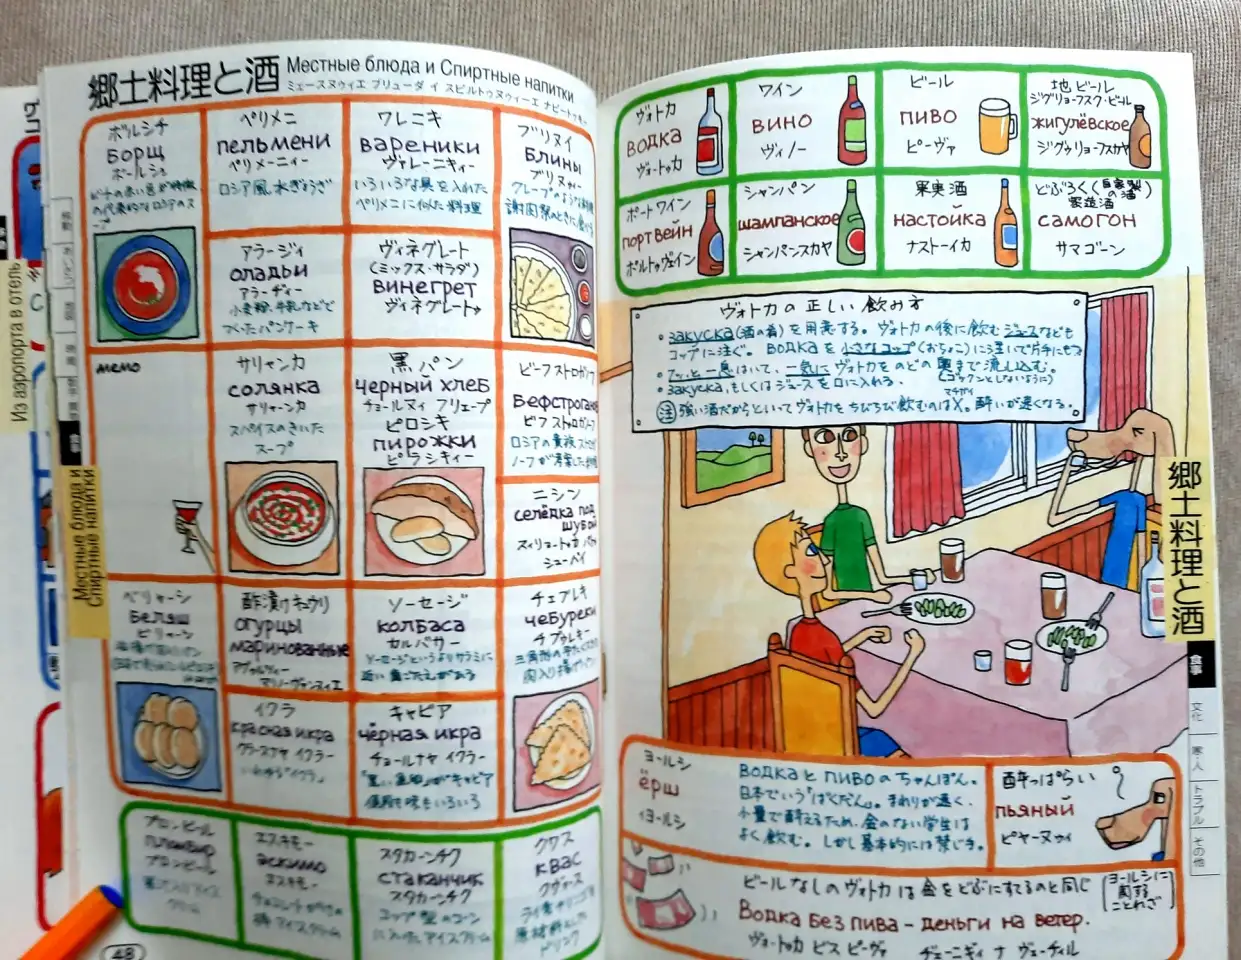 郷土料理と酒
Местные блюда и Спиртные напитки
ボルシチ
борщ
ボールシュ
ペリメニ
пельмени
ペリメーニィー
ロシア風水ぎょうざ
ワレニキ
вареники
ヴァレーニキィー
いろいろな具を入れた
ペリメニに似た料理
ブリヌイ
блины
ブリヌィー
クレープのような
アラージィ
оладьи
アラーヂィー
小麦粉、牛乳などで
つくったパンケーキ
ヴィネグレート
(ミックス・サラダ)
винегрет
ヴィネグレートゥ
мемо
サリャンカ
солянка
サリャーンカ
スパイスのきいた
スープ
黒パン
чёрный хлеб
チョールヌィ フリェープ
ピロシキ
пирожки
ピラシキィー
ビーフストロガノフ
Бефстроган
ニシン
селёдка под
шубой
ベリャーシ
беляш
ビリャーシ
酢漬けキュウリ
огурцы
маринованные
ソーセージ
колбаса
カルバサー
ソーセージというよりサラミに
近い歯ごたえがある
チェブレキ
чебуреки
チブゥレキー
三角形の平たくて
肉入り揚げパン
イクラ
красная икра
クラースナヤ イクラー
いわゆる"イクラ"
キャビア
чёрная икра
チョールナヤ イクラー
プロンビール
пломбир
プロンビール
エスキモー
эскимо
エスキモー
スタカーンチク
стаканчик
スタカーンチク
コップ型のコーン
に入ったアイスクリーム
クワス
квас
クヴァース
ドリンク
48
Из аэропорта в отель
Местные блюда и
Спиртные напитки
食事
ヴォトカ
водка
ヴォートゥカ
ワイン
вино
ヴィノー
ビール
пиво
ピーヴァ
地ビール
ジグリョーフスク・ビール
жигулёвское
ジグゥリョーフスカヤ
ポートワイン
портвейн
ポルトゥヴェイン
シャンパン
шампанское
シャンパンスカヤ
果実酒
настойка
ナストーイカ
どぶろく(自家製の酒 密造酒)
самогон
サマゴーン
ヴォトカの正しい飲み方
・закуска(酒の肴)を用意する。ヴォトカの後に飲むジュースなども
コップに注ぐ。водкаを小さなコップ(おちょこ)に注いで片手にもつ
・フッと一息はいて、一気にヴォトカをのどの奥まで流し込む。
(ゴックンとしないように)
・закуска、もしくはジュースを口に入れる。
マチガイ
注 強い酒だからといってヴォトカをちびちび飲むのは×。酔いが速くなる。
郷土料理と酒
食事
文化
家・人
トラブル
その他
ヨールシ
ёрш
ィヨールシ
водкаとпивоのちゃんぽん。
日本でいう「ばくだん」。まわりが速く、
少量で酔えるため、金のない学生は
よく飲む。しかし基本的には禁じ手。
酔っぱらい
пьяный
ピヤーヌゥィ
ビールなしのヴォトカは金をどぶにすてるのと同じ
(ヨールシに
関する
ことわざ)
Водка без пива - деньги на ветер.
ヴォートゥカ ビス ピーヴァ ヂェーニギィ ナ ヴェーチル